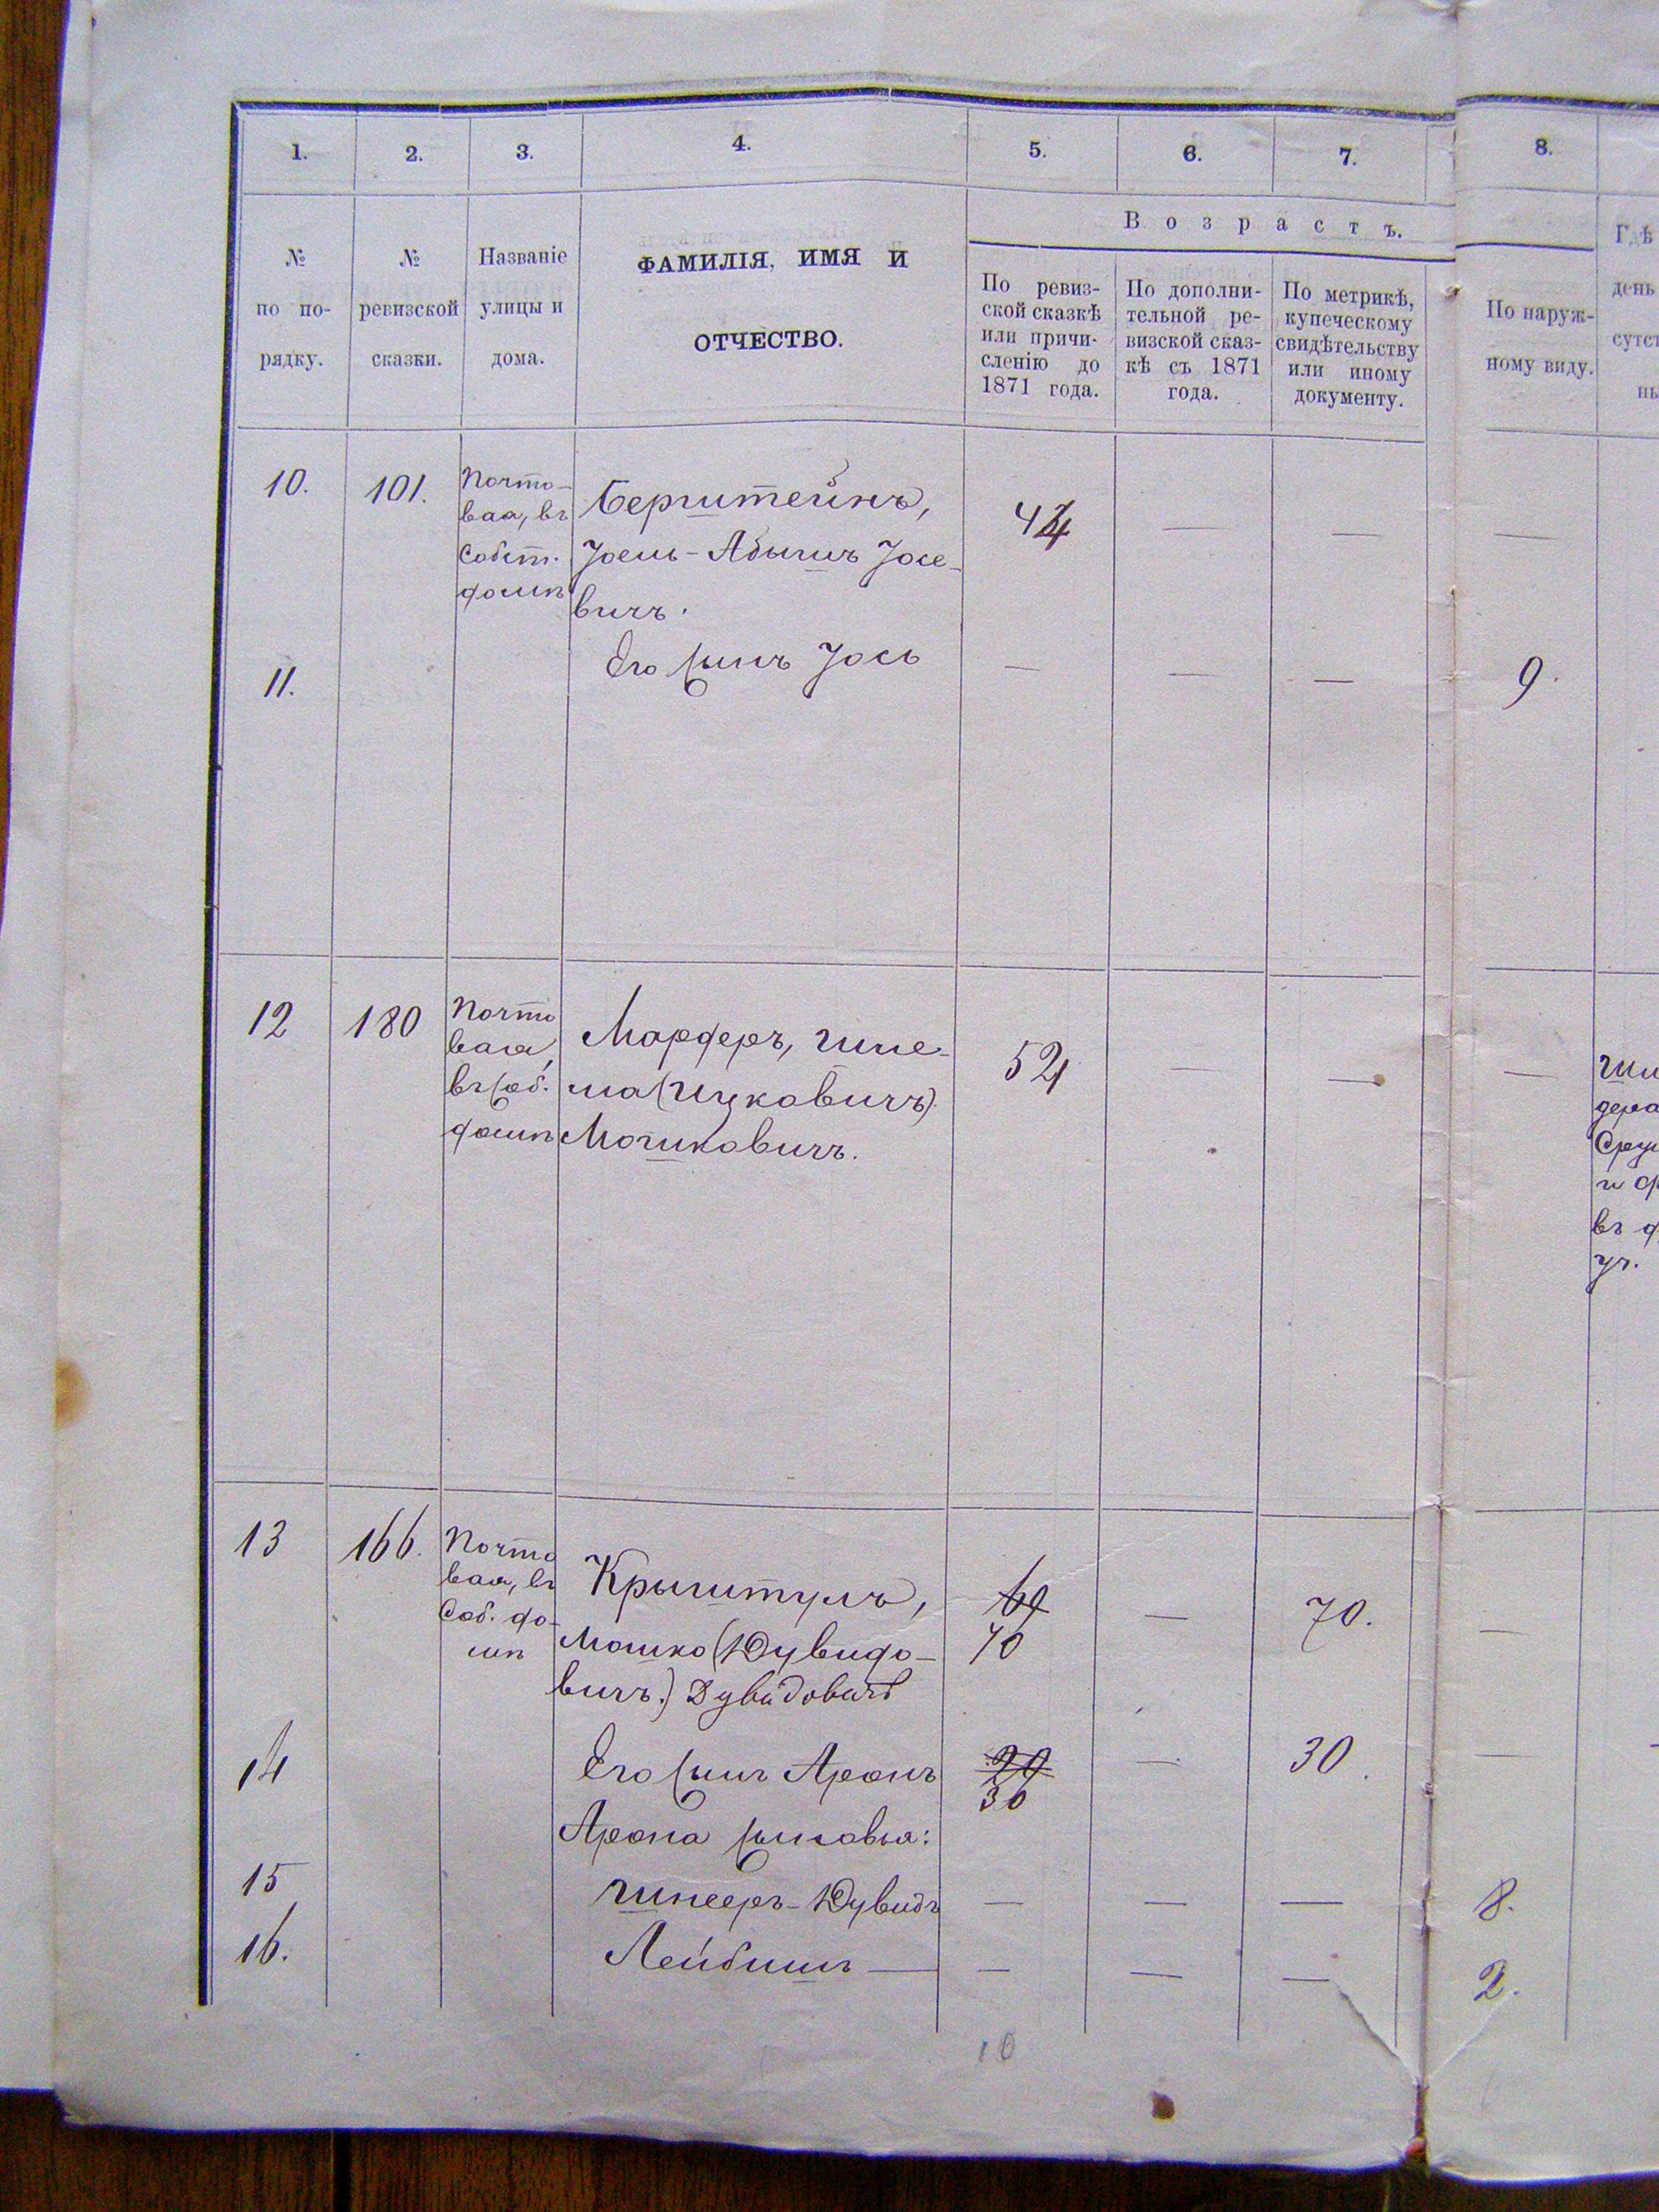 1. 2. 3. 4. 5. 6. 7. 8.
№ по по- рядку.
№ ревизской сказки.
Названіе улицы и дома.
ФАМИЛІЯ, ИМЯ И
ОТЧЕСТВО.
Возрастъ.
По ревиз-
ской сказкѣ
или причи-
сленію до
1871 года.
По дополни-
тельной ре-
визской сказ-
кѣ съ 1871
года.
По метрикѣ,
купеческому
свидѣтельству
или иному
документу.
По наруж-
ному виду.
Гдѣ
день
сутст
ны
10. 101.
Почто-
вая, въ
Собст.
домѣ
Берштейнъ,
Іоель-Абышъ Іосе-
вичъ.
— — —
11. Его сынъ Іось — — — 9.
12 180
Почто
вая,
въ соб.
домѣ
Марферъ, Шле-
ма (Ицковичъ)
Мошковичъ.
52 — — —
въ
уч.
13 166.
Почто
вая, въ
Соб. до-
мѣ
Крыштулъ,
Мошко (Дувидо-
вичъ.) Дувидовичъ
69
70
— 70. —
14 Его сынъ Аронъ
29
30
— 30. —
Арона сыновья:
15 Шнееръ-Дувидъ — — — 8.
16. Лейбишъ — — — — 2.
10